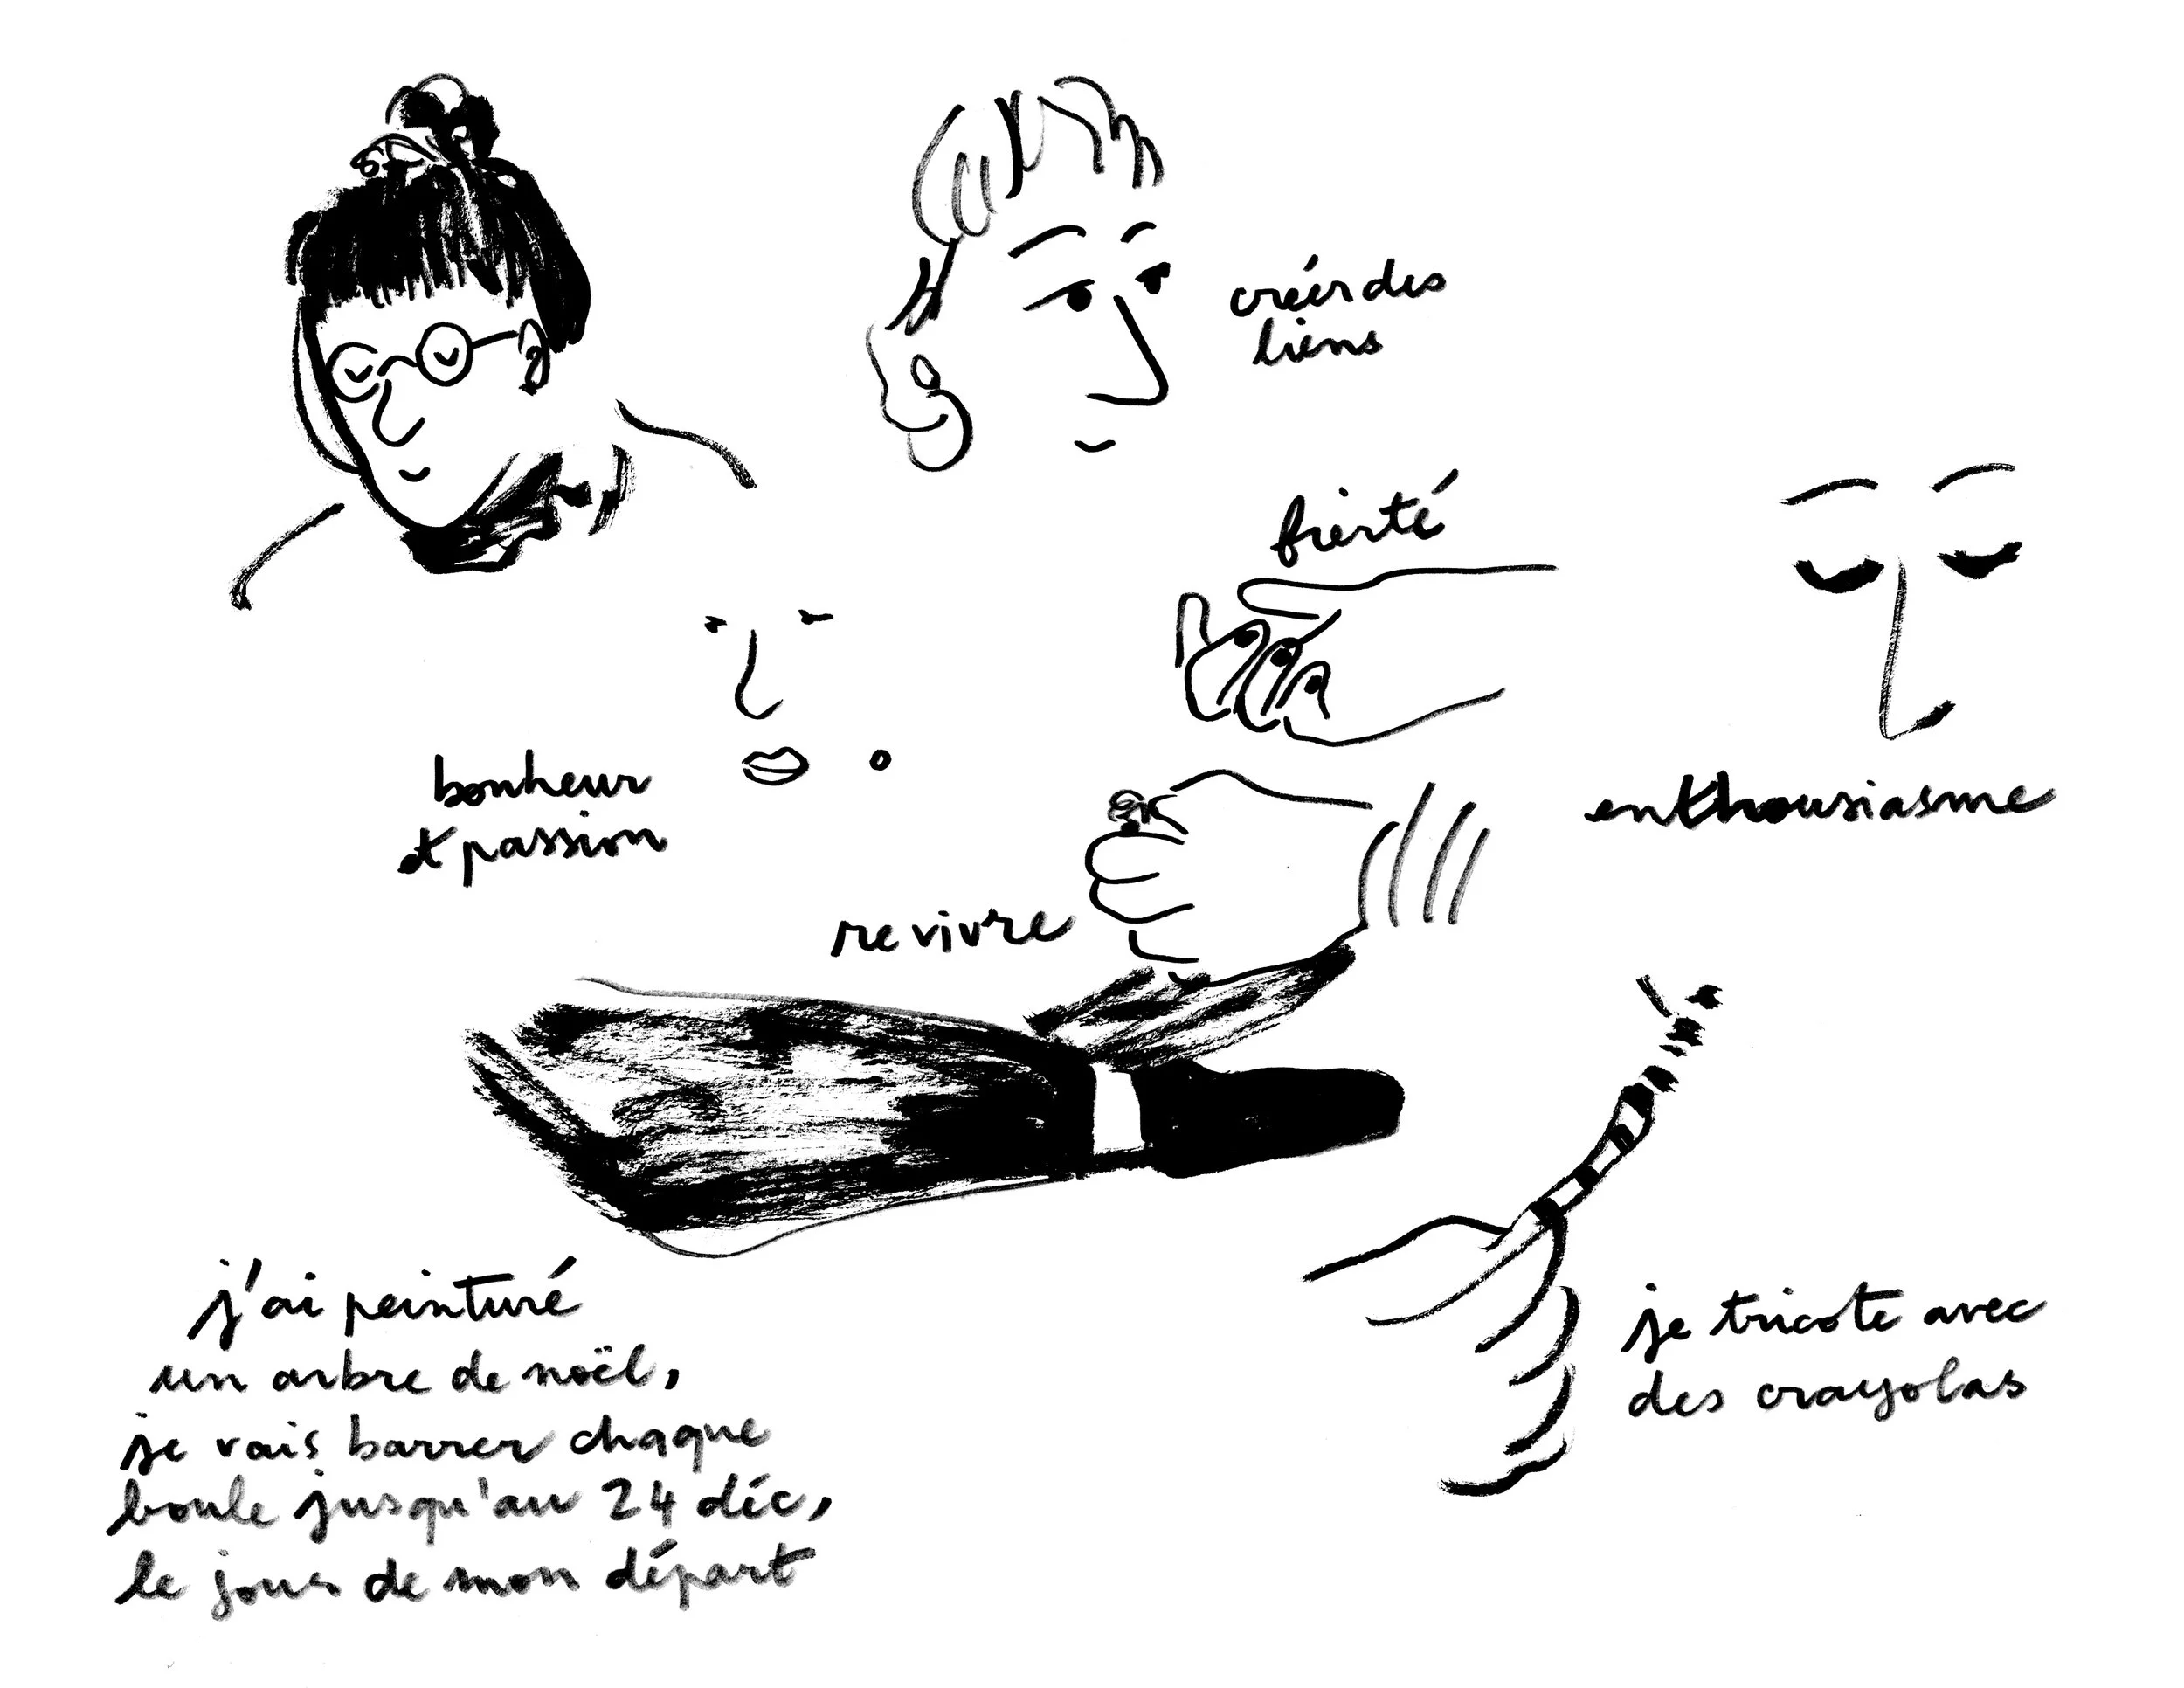 créer des
liens
fierté
bonheur
et passion
enthousiasme
revivre
j'ai peinturé
un arbre de noël,
je vais barrer chaque
boule jusqu'au 24 déc,
le jour de mon départ
je tricote avec
des crayolas